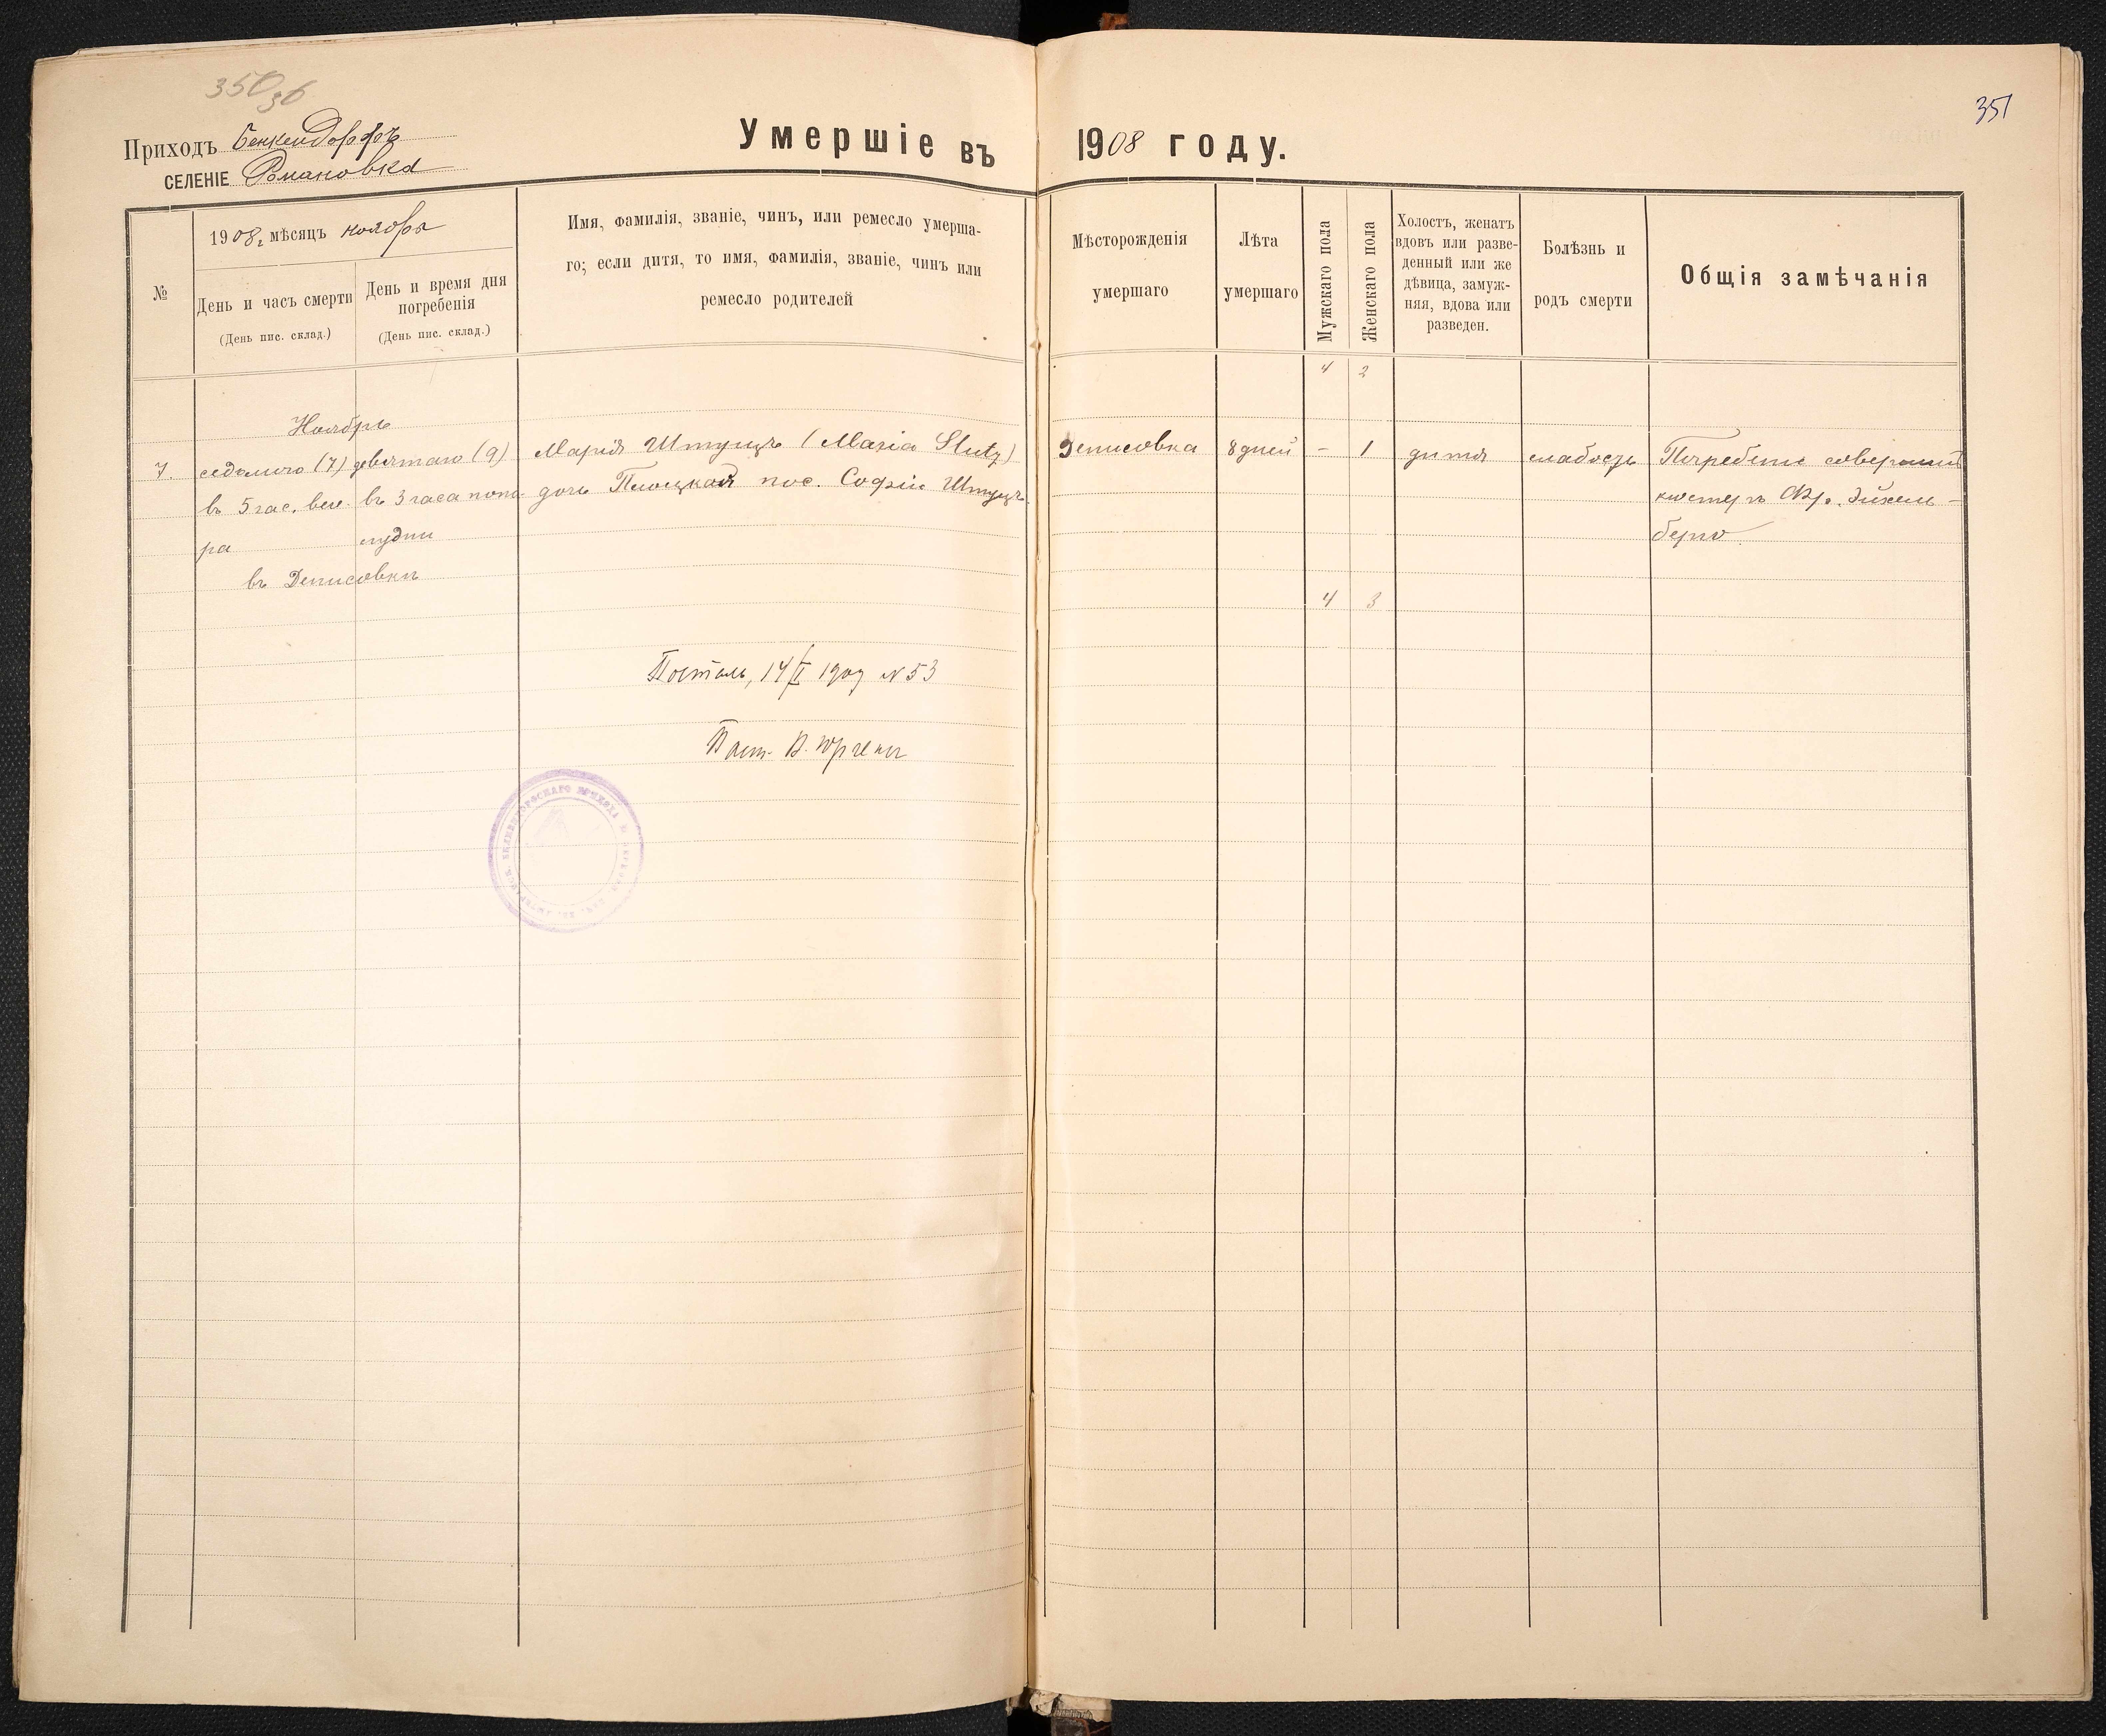 350
36
351
Приходъ Бенкендорфъ
СЕЛЕНІЕ Романовка
Умершіе въ 1908 году.
№
1908 г. мѣсяцъ ноябрь
День и часъ смерти
(День пис. склад.)
День и время дня
погребенія
(День пис. склад.)
Имя, фамилія, званіе, чинъ, или ремесло умерша-
го; если дитя, то имя, фамилія, званіе, чинъ или
ремесло родителей
Мѣсторожденія
умершаго
Лѣта
умершаго
Мужскаго пола
Женскаго пола
Холостъ, женатъ
вдовъ или разве-
денный или же
дѣвица, замуж-
няя, вдова или
разведен.
Болѣзнь и
родъ смерти
Общія замѣчанія
4 2
Ноябрь
7. седьмого (7) девятаго (9) Марія Штуцъ (Maria Stutz) Денисовка 8 дней – 1 дитя слабость Погребеніе совершилъ
въ 5 час. вече- въ 3 часа попо- дочь Плоцкой пос. Софіи Штуцъ. кистеръ Фр. Эйхель-
ра лудни бергъ.
въ Денисовкѣ
4 3
Постталь, 14/I 1909 N 53
Паст. В. Юргенсъ